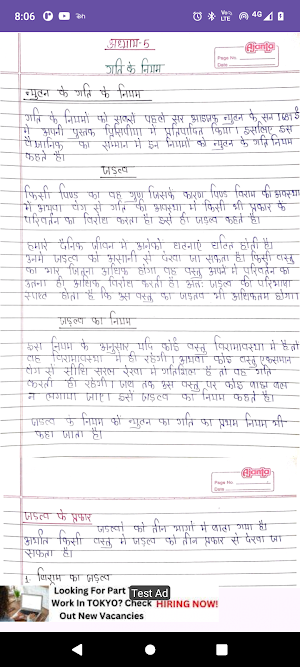 8:06
4G
अध्याय-5
गति के नियम
Ajanta
Page No.
Date
न्यूटन के गति के नियम
गति के नियमों को सबसे पहले सर आइजक न्यूटन के सन 1687 ई
में अपनी पुस्तक प्रिंसीपिया में प्रतिपादित किया। इसलिए इस
वैज्ञानिक का सम्मान में इन नियमों को न्यूटन के गति नियम
कहते है।
जड़त्व
किसी पिण्ड का वह गुण जिसके कारण पिण्ड विराम की अवस्था
में अथवा वेग से गति की अवस्था में किसी भी प्रकार के
परिवर्तन का विरोध करता है। इसे ही जड़त्व कहते है।
हमारे दैनिक जीवन में अनेकों घटनाएं घटित होती है।
उनमें जड़त्व को आसानी से देखा जा सकता है। किसी वस्तु
का भार जितना अधिक होगा वह वस्तु अपने में परिवर्तन का
उतना ही अधिक विरोध करती है। अतः जड़त्व की परिभाषा
स्पष्ट होता है कि उस वस्तु का जडत्व भी अधिकतम होगा।
जड़त्व का नियम
इस नियम के अनुसार यदि कोई वस्तु विरामावस्था में है तो
वह विरामावस्था में ही रहेगी। अथवा कोई वस्तु एकसमान
वेग से सीधी सरल रेखा में गतिशील है तो वह गति
करती ही रहेगी। जब तक उस वस्तु पर कोई बाह्य बल
न लगाया जाए। इसे जड़त्व का नियम कहते है।
जड़त्व के नियम को न्यूटन का गति का प्रथम नियम भी
कहा जाता है।
Ajanta
Page No.
Date
जड़त्व के प्रकार
जड़त्वों को तीन भागों में बांटा गया है।
अर्थात किसी वस्तु में जड़त्व को तीन प्रकार से देखा जा
सकता है।
1. विराम का जड़त्व
Looking For Part
Test Ad
Work In TOKYO? Check
HIRING NOW!
Out New Vacancies